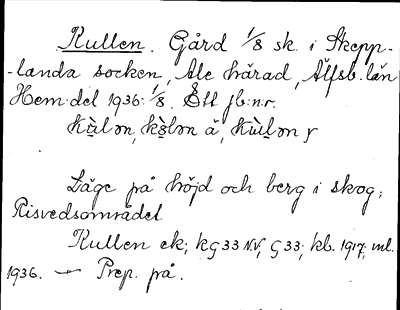 Kullen. Gård 1/8 sk. i Skepp-
-landa socken, Ale härad, Älfsb. län
Hem.del 1936: 1/8. Ett jb:n:r.
Läge på höjd och berg i skog;
Risvedsområdet.
Kullen ek; kG33 N.V., G 33; kb. 1917; ml.
1936. — Prep. på.